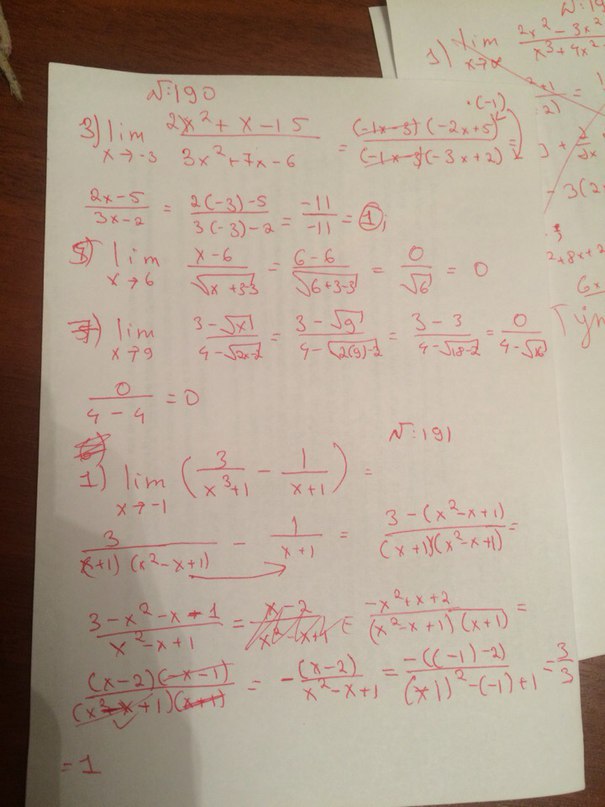 N:190
3) lim x→-3 (2x² + x - 15)/(3x² + 7x - 6) = ((-1x-3)(-2x+5))/((-1x-3)(-3x+2)) ·(-1) =
(2x-5)/(3x-2) = (2(-3)-5)/(3(-3)-2) = (-11)/(-11) = 1;
lim x→6 (x-6)/(√(x+3-3)) = (6-6)/(√(6+3-3)) = 0/√6 = 0
lim x→9 (3-√x)/(4-√(2x-2)) = (3-√9)/(4-√(2(9)-2)) = (3-3)/(4-√(18-2)) = 0/(4-√16)
0/(4-4) = 0
N:191
1) lim x→-1 (3/(x³+1) - 1/(x+1)) =
3/((x+1)(x²-x+1)) - 1/(x+1) = (3-(x²-x+1))/((x+1)(x²-x+1)) =
(3-x²-x-1)/(x²-x+1) = (-x²+x+2)/((x²-x+1)(x+1)) =
((x-2)(-x-1))/((x²-x+1)(x+1)) = -(x-2)/(x²-x+1) = (-((-1)-2))/((-1)²-(-1)+1) = 3/3
= 1
1) lim x→∞ (2x² - 3x²)/(x³ + 4x²
2+8x+2